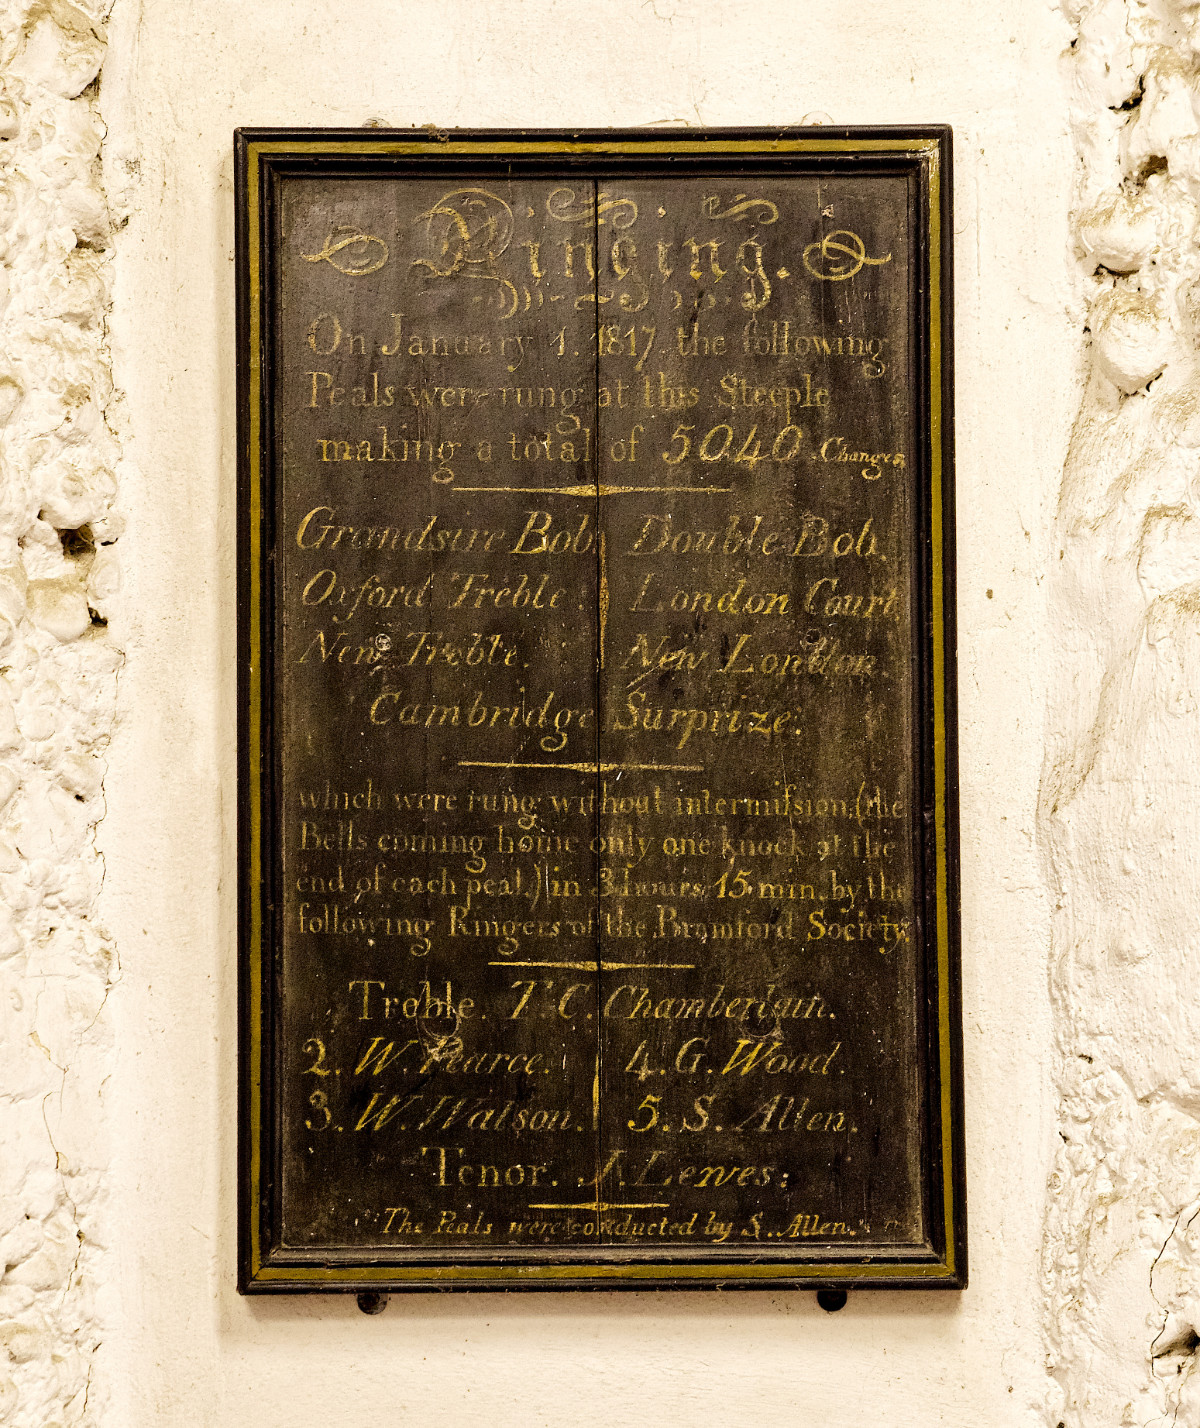 Ringing.
On January 1. 1817. the following
Peals were rung at this Steeple
making a total of 5040 Changes,
Grandsire Bob. Double Bob.
Oxford Treble: London Court
New Treble. New London.
Cambridge Surprize:
which were rung without intermiſsion, (the
Bells coming home only one knock at the
end of each peal,) in 3 hours, 15 min. by the
following Ringers of the Bramford Society.
Treble. T. C. Chamberlain.
2. W. Pearce. 4. G. Wood.
3. W. Watson. 5. S. Allen.
Tenor. J. Lewes:
The Peals were conducted by S. Allen.